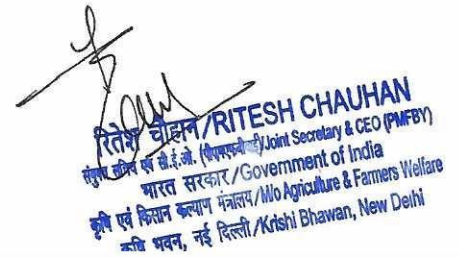 रितेश चौहान/RITESH CHAUHAN
संयुक्त सचिव एवं सी.ई.ओ. (पीएमएफबीवाई)/Joint Secretary & CEO (PMFBY)
भारत सरकार/Government of India
कृषि एवं किसान कल्याण मंत्रालय/M/o Agriculture & Farmers Welfare
कृषि भवन, नई दिल्ली/Krishi Bhawan, New Delhi